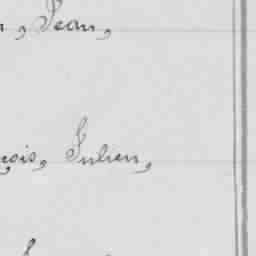 , Jean,
çois, Julien,